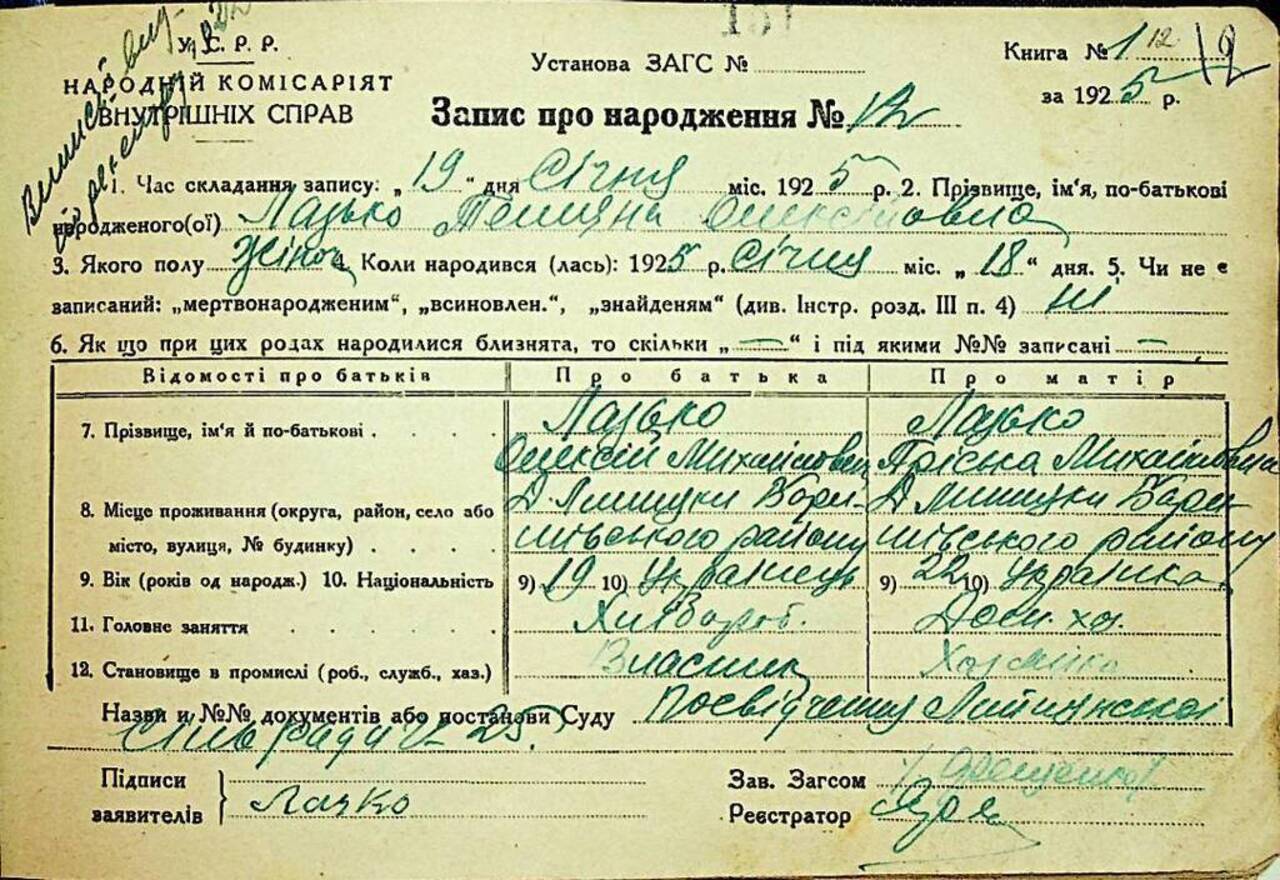 У. С. Р. Р.
НАРОДНІЙ КОМІСАРІЯТ
ВНУТРІШНІХ СПРАВ
Установа ЗАГС №
Книга № 1 12 12
за 1925 р.
Запис про народження № 12
1. Час складання запису: „19“ дня Січня міс. 1925 р. 2. Прізвище, ім'я, по-батькові
народженого(ої) Лазько Тетяна Олексіївна
3. Якого полу Жіноч 4. Коли народився (лась): 1925 р. Січня міс. „18“ дня. 5. Чи не є
записаний: „мертвонародженим“, „всиновлен.“, „знайденям“ (див. Інстр. розд. III п. 4) ні
6. Як що при цих родах народилися близнята, то скільки „—“ і під якими №№ записані —
Відомості про батьків Про батька Про матір
7. Прізвище, ім'я й по-батькові Лазько Лазько
Олексій Михайлович Пріська Михайловна
8. Місце проживання (округа, район, село або Бори- Бари-
місто, вулиця, № будинку) шівського району шівського району
9. Вік (років од народж.) 10. Національність 9) 19 10) Українець 9) 22 10) Українка
11. Головне заняття Хлібороб. Дом. хаз.
12. Становище в промислі (роб., служб., хаз.) Власник Хазяйка
Назви и №№ документів або постанови Суду Посвідчення
Сільради 25.
Підписи
заявителів Лазько
Зав. Загсом
Реєстратор